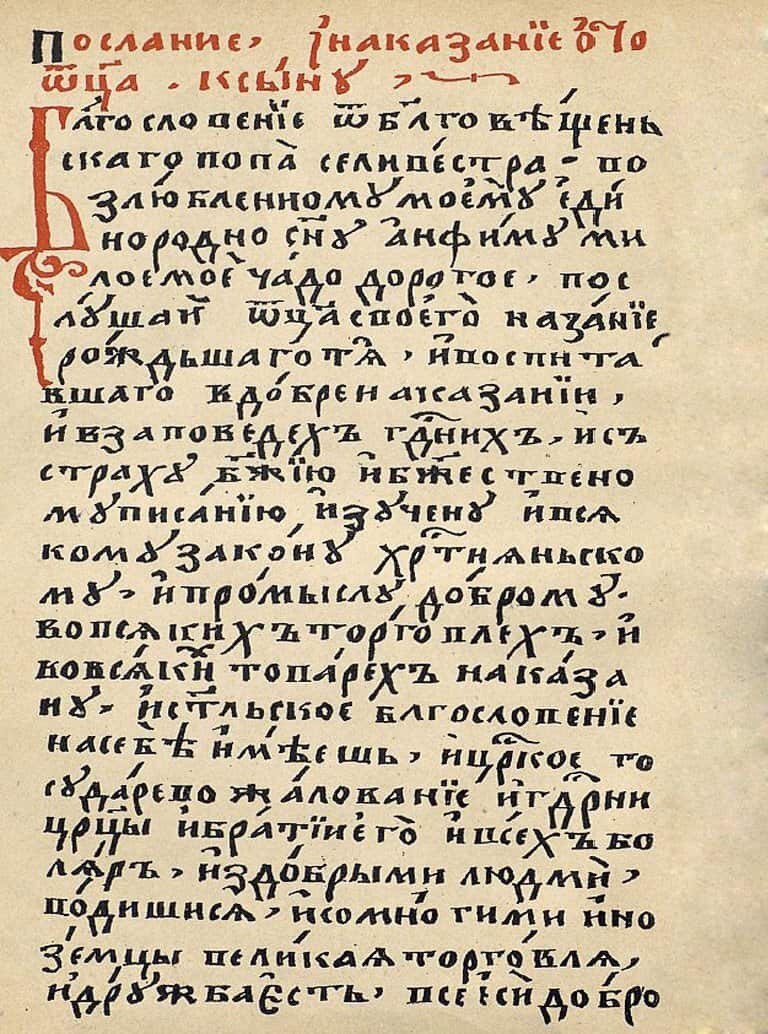 Послание, и наказанїе ѿ
ѿца . к сыну ,
Блгословенїе ѿ блговѣщень
скаго попа селивестра - во
злюбленному моему еди
нородно снꙋ анфимꙋ ми
лое мое чадо дорогое, пос
лꙋшай ѿца своего наказанїе
рождьшаго тя, и воспита
вшаго в добре наказании,
и в заповедехъ гднихъ, и съ
страхꙋ бжїю и бжествено
мꙋ писанїю изꙋченꙋ и вся
комꙋ законꙋ хртияньско
мꙋ, и промыслꙋ добромꙋ.
во всякихъ торговлехъ, и
во всяки товарехъ наказа
нꙋ, и стльское блгословенїе
на себѣ имѣешь, и црское го
сꙋдарево жалованїе и гдрни
црцы и братїи его и всехъ бо
ляръ, и з добрыми людми,
водишися, и со многими ино
земцы великая торговля,
и дрꙋжба есть, все еси добро